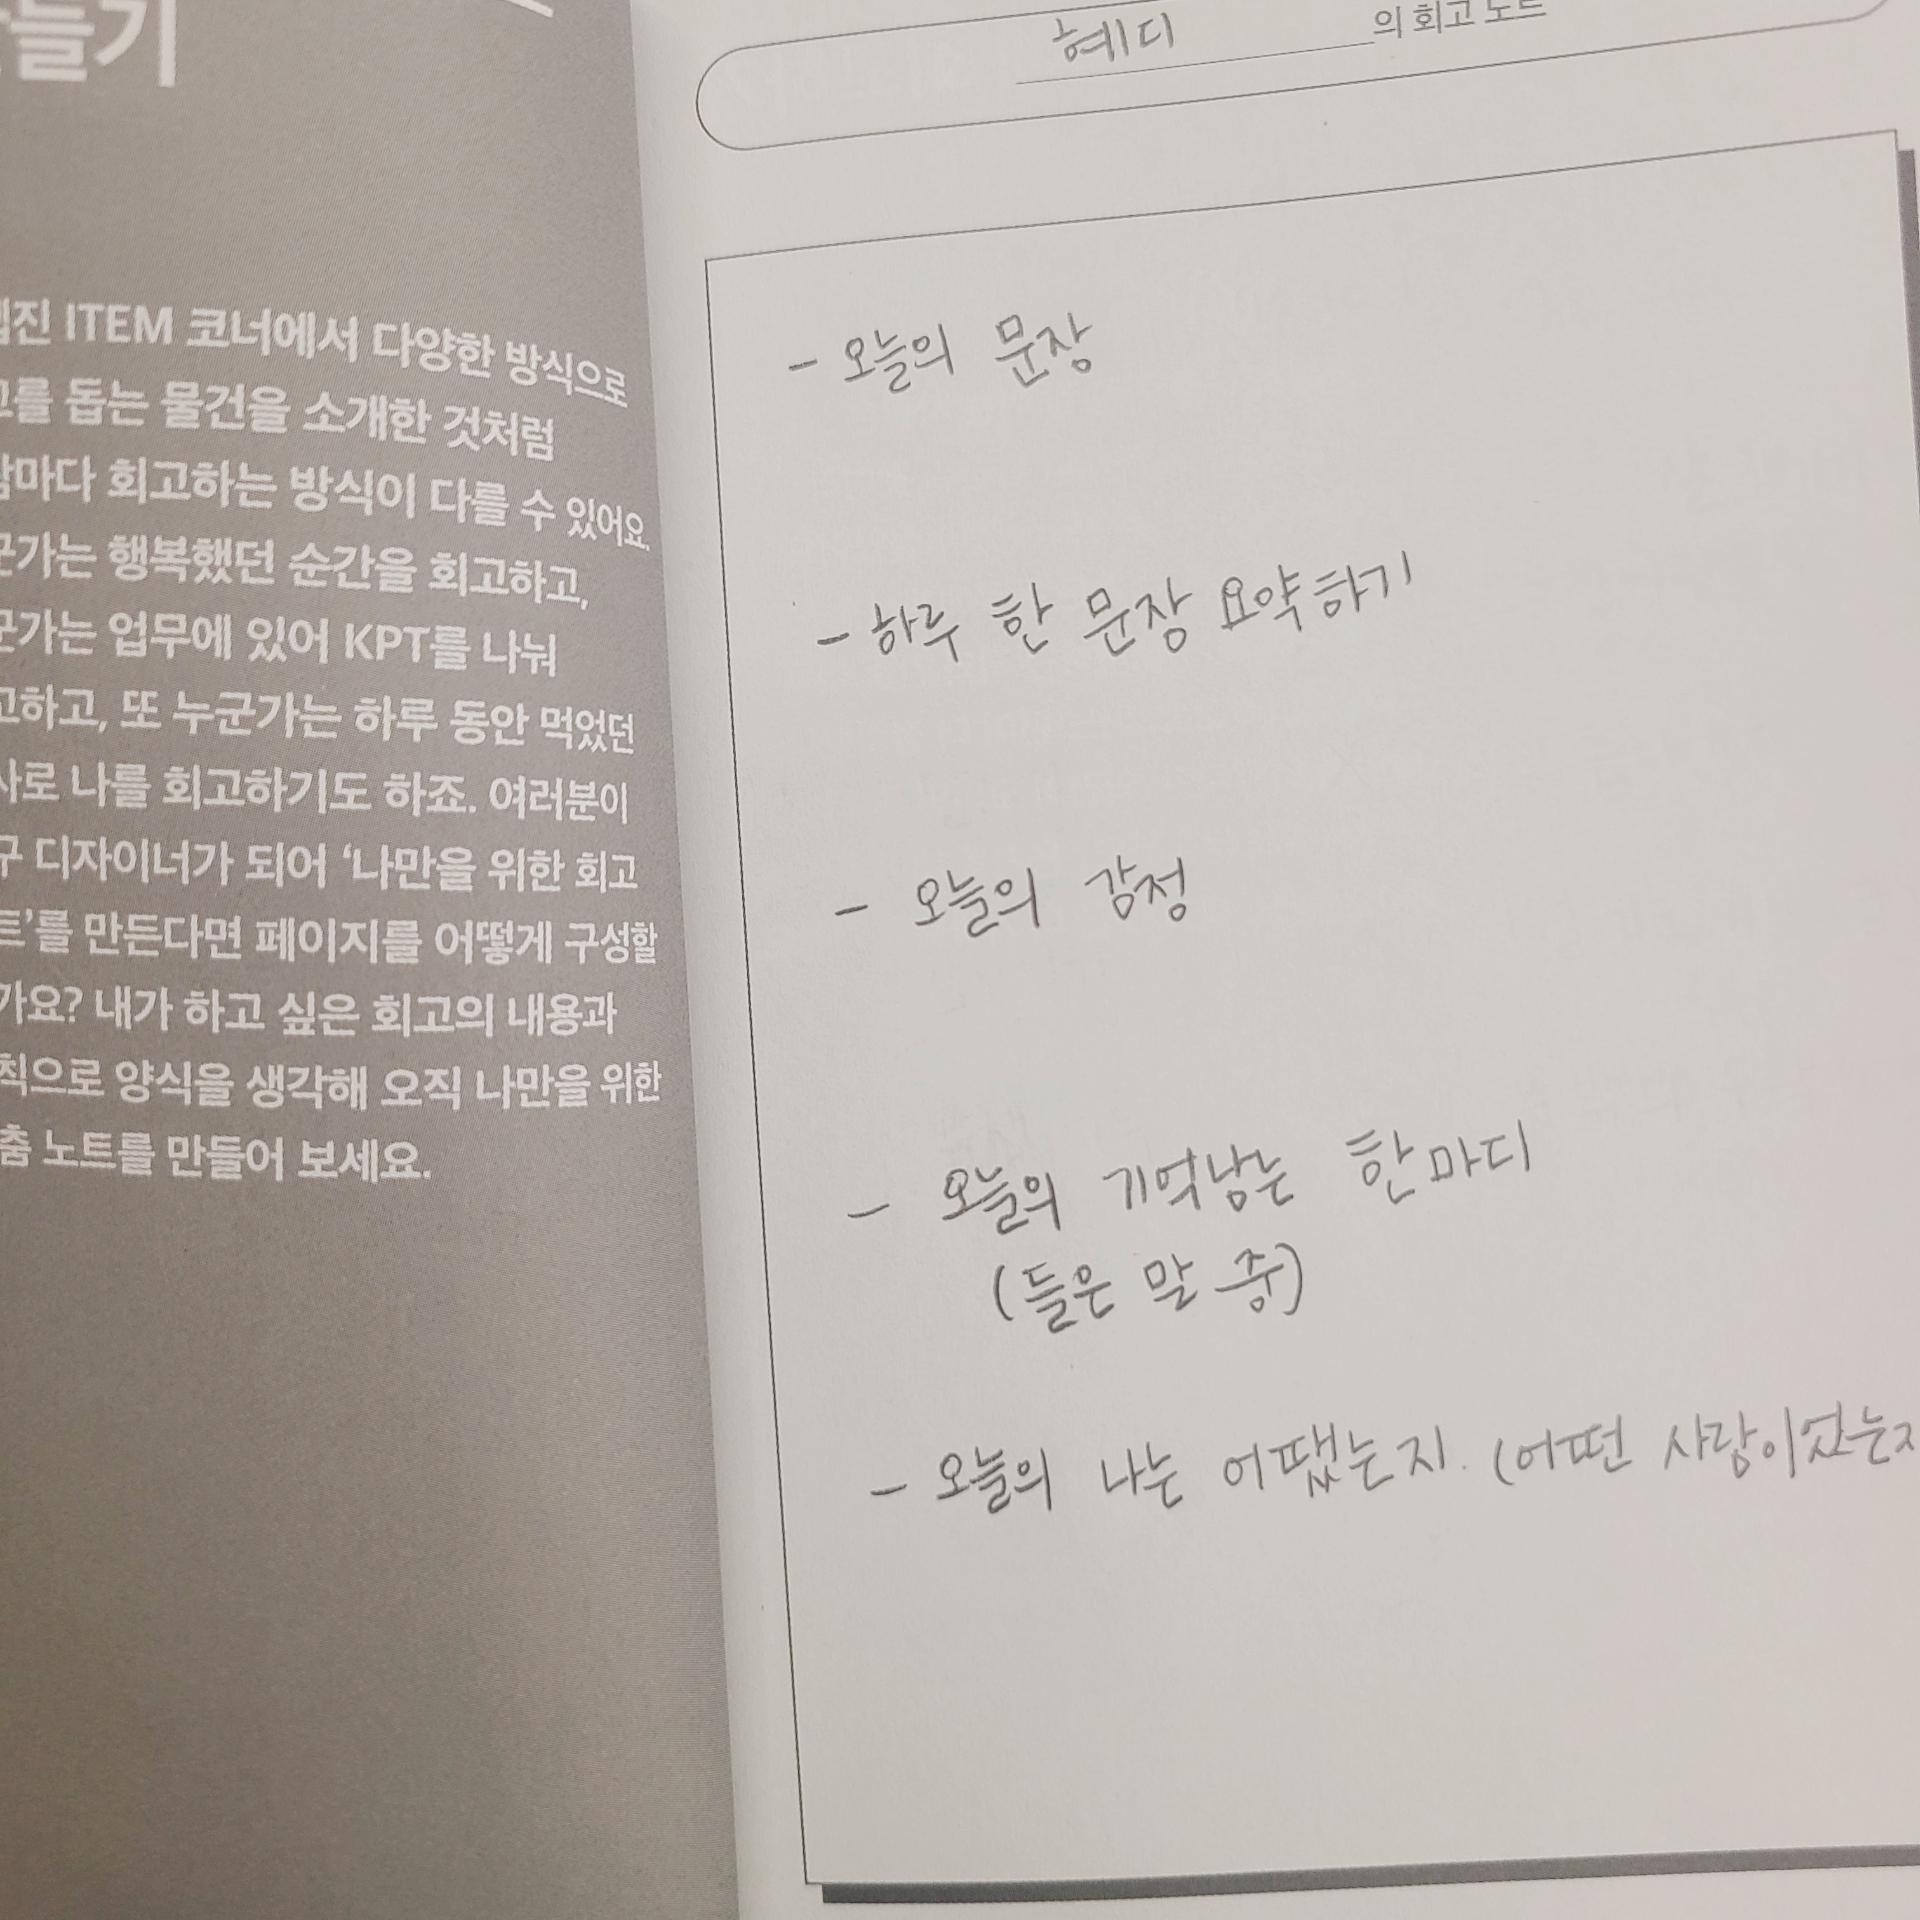 들기
진 ITEM 코너에서 다양한 방식으로
를 돕는 물건을 소개한 것처럼
마다 회고하는 방식이 다를 수 있어요.
군가는 행복했던 순간을 회고하고,
군가는 업무에 있어 KPT를 나눠
고하고, 또 누군가는 하루 동안 먹었던
사로 나를 회고하기도 하죠. 여러분이
구 디자이너가 되어 ‘나만을 위한 회고
트’를 만든다면 페이지를 어떻게 구성할
가요? 내가 하고 싶은 회고의 내용과
칙으로 양식을 생각해 오직 나만을 위한
춤 노트를 만들어 보세요.
혜디 의 회고 노트
- 오늘의 문장
- 하루 한 문장 요약하기
- 오늘의 감정
- 오늘의 기억남는 한마디
(들은 말 중)
- 오늘의 나는 어땠는지. (어떤 사람이었는지